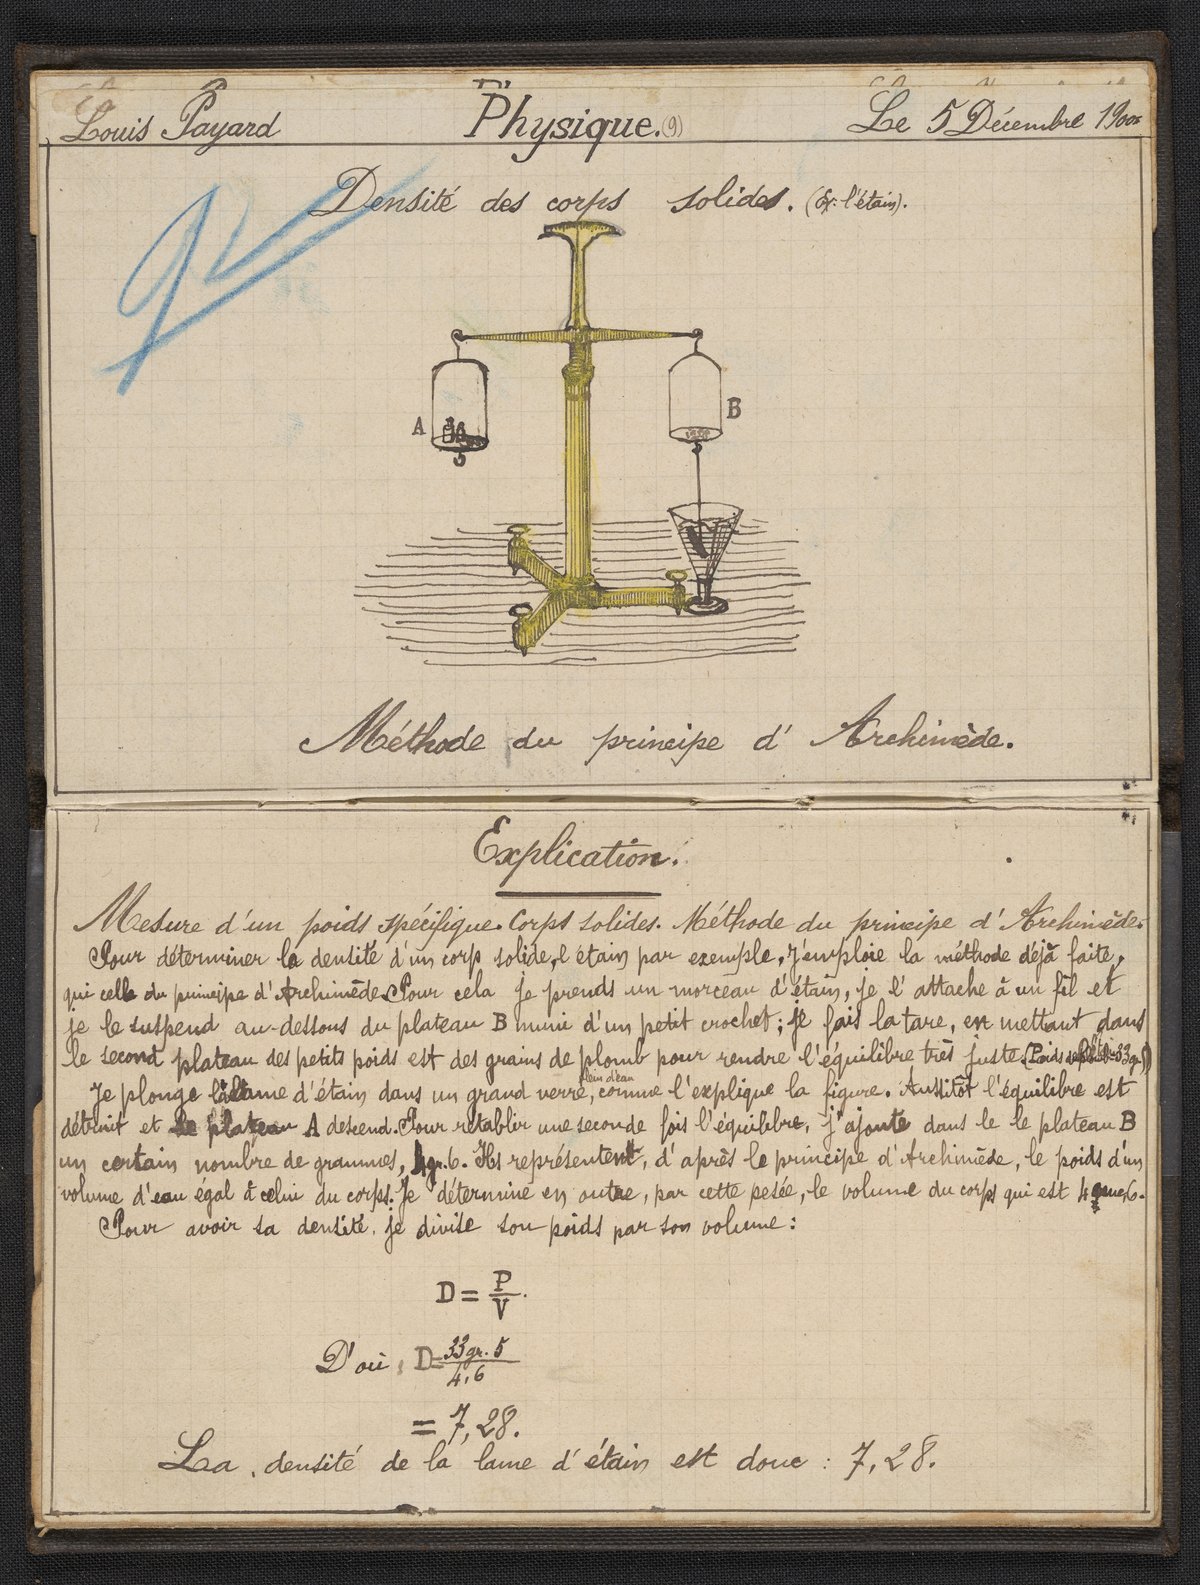 Louis Payard
Physique. (9)
Le 5 Décembre 1900
Densité des corps solides. (Ex: l'étain).
A
B
Méthode du principe d'Archimède.
Explication.
Mesure d'un poids spécifique. Corps solides. Méthode du principe d'Archimède.
Pour déterminer la densité d'un corp solide, l'étain par exemple, j'emploie la méthode déjà faite,
qui celle du principe d'Archimède. Pour cela je prends un morceau d'étain, je l'attache à un fil et
je le suspend au-dessous du plateau B muni d'un petit crochet; je fais la tare, en mettant dans
le second plateau des petits poids est des grains de plomb pour rendre l'équilibre très juste. (Poids
Je plonge la lame d'étain dans un grand verre, plein d'eau comme l'explique la figure. Aussitôt l'équilibre est
détruit et le plateau A descend. Pour rétablir une seconde fois l'équilibre, j'ajoute dans le le plateau B
un certain nombre de grammes, 4gr.6. Ils représentent, d'après le principe d'Archimède, le poids d'un
volume d'eau égal à celui du corps. Je détermine en outre, par cette pesée, le volume du corps qui est 4 6.
Pour avoir sa densité, je divise son poids par son volume:
D = P/V.
D'où, D = 33gr.5/4,6
= 7,28.
La densité de la lame d'étain est donc : 7,28.